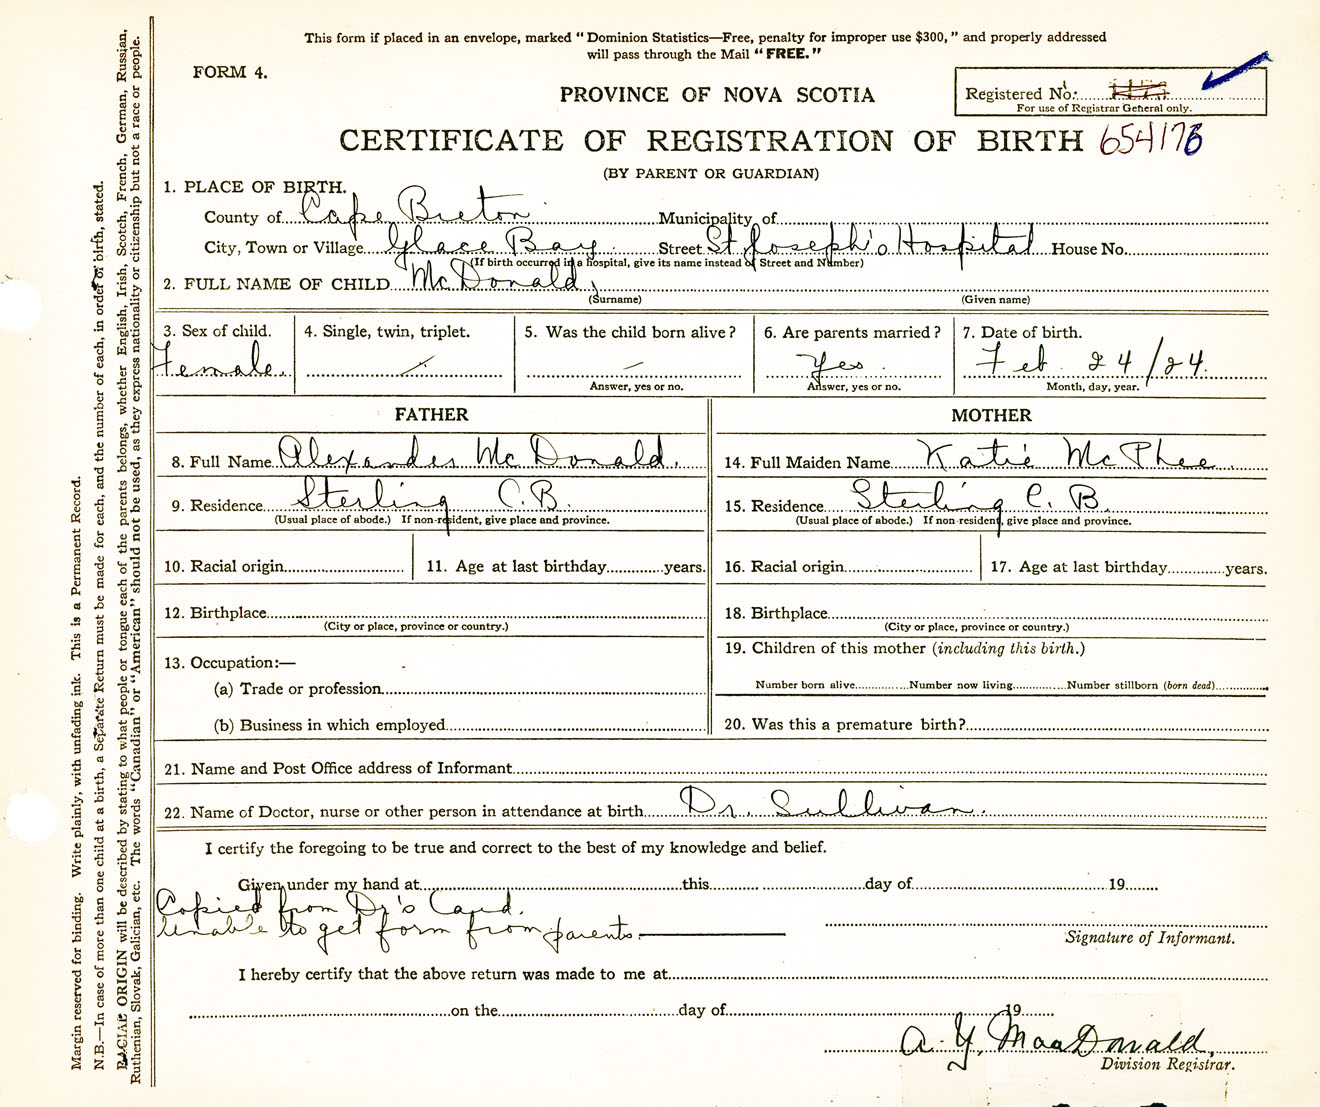 This form if placed in an envelope, marked "Dominion Statistics—Free, penalty for improper use $300," and properly addressed
will pass through the Mail "FREE."
FORM 4.
Registered No.
For use of Registrar General only.
PROVINCE OF NOVA SCOTIA
CERTIFICATE OF REGISTRATION OF BIRTH 654176
(BY PARENT OR GUARDIAN)
1. PLACE OF BIRTH.
County of Cape Breton Municipality of
City, Town or Village Glace Bay Street St. Joseph's Hospital House No.
(If birth occurred in a hospital, give its name instead of Street and Number)
2. FULL NAME OF CHILD McDonald,
(Surname) (Given name)
3. Sex of child. 4. Single, twin, triplet. 5. Was the child born alive? 6. Are parents married? 7. Date of birth.
Female. Yes Feb 24/24.
Answer, yes or no. Answer, yes or no. Month, day, year.
FATHER MOTHER
8. Full Name Alexander McDonald. 14. Full Maiden Name Katie McPhee.
9. Residence Sterling C.B. 15. Residence Sterling C.B.
(Usual place of abode.) If non-resident, give place and province. (Usual place of abode.) If non-resident, give place and province.
10. Racial origin 11. Age at last birthday years. 16. Racial origin 17. Age at last birthday years.
12. Birthplace 18. Birthplace
(City or place, province or country.) (City or place, province or country.)
13. Occupation:— 19. Children of this mother (including this birth.)
(a) Trade or profession Number born alive Number now living Number stillborn (born dead)
(b) Business in which employed 20. Was this a premature birth?
21. Name and Post Office address of Informant
22. Name of Doctor, nurse or other person in attendance at birth Dr. Sullivan.
I certify the foregoing to be true and correct to the best of my knowledge and belief.
Given under my hand at this day of 19
Copied from Dr's Card.
Unable to get form from parents.
Signature of Informant.
I hereby certify that the above return was made to me at
on the day of 19
A. Y. MacDonald,
Division Registrar.
Margin reserved for binding. Write plainly, with unfading ink. This is a Permanent Record.
N.B.—In case of more than one child at a birth, a Separate Return must be made for each, and the number of each, in order of birth, stated.
RACIAL ORIGIN will be described by stating to what people or tongue each of the parents belongs, whether English, Irish, Scotch, French, German, Russian,
Ruthenian, Slovak, Galician, etc. The words "Canadian" or "American" should not be used, as they express nationality or citizenship but not a race or people.